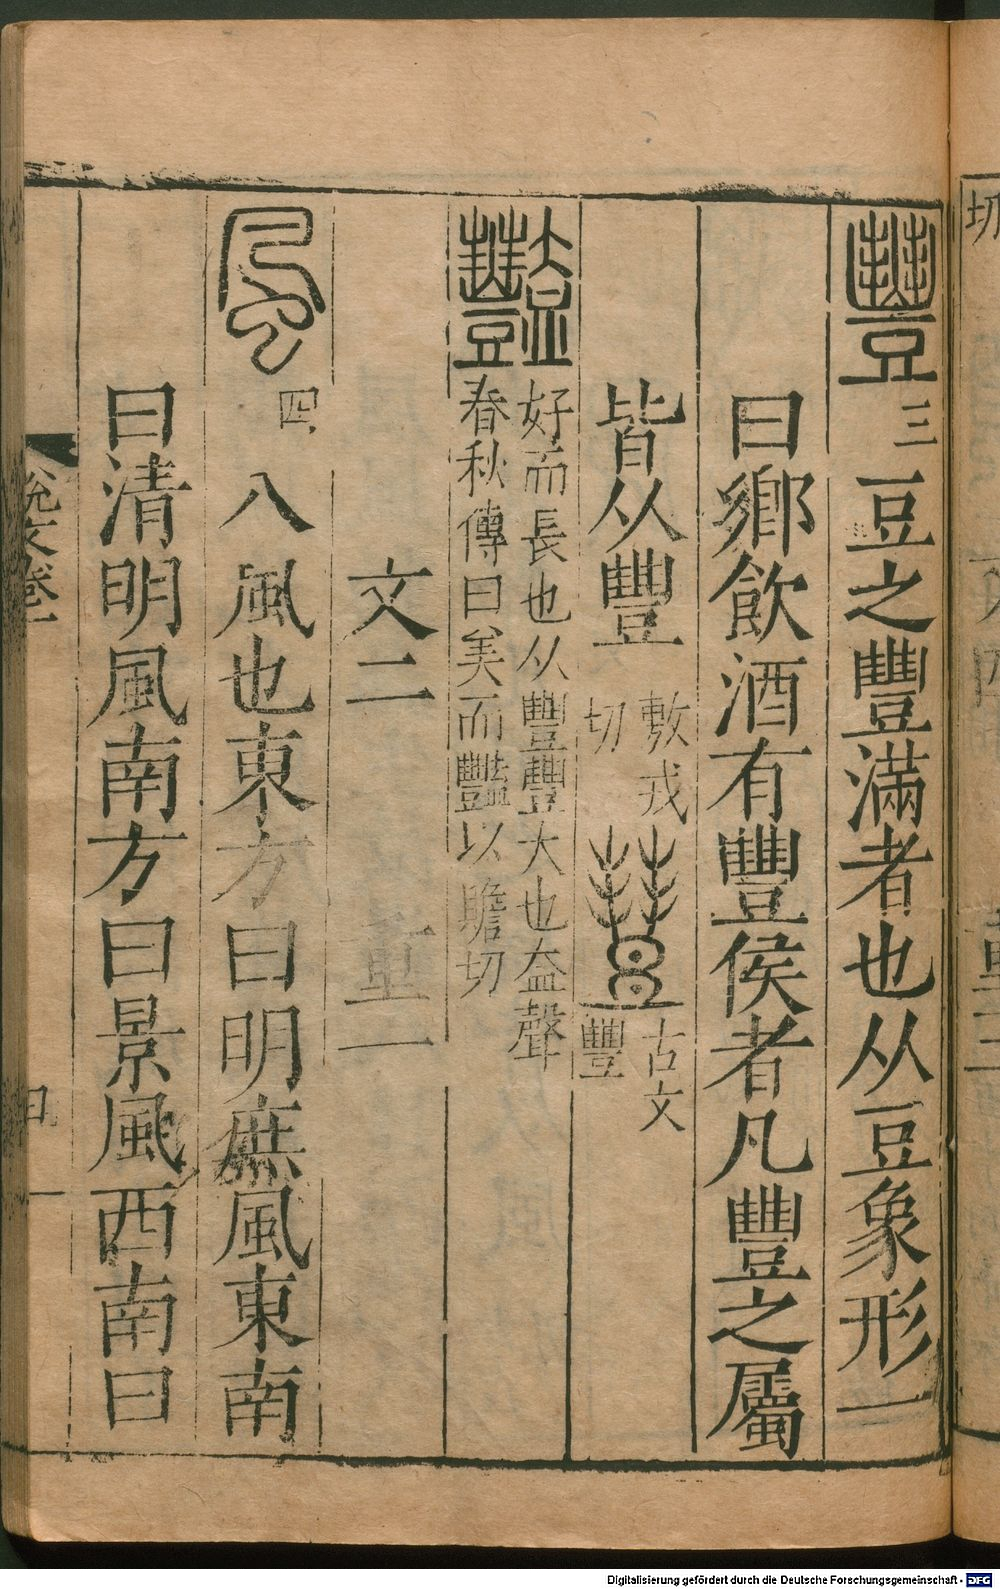 豐三豆之豐滿者也从豆象形一
曰鄉飲酒有豐侯者凡豐之屬
皆从豐敷戎切豐古文豐
豔好而長也从豐豐大也盍聲
春秋傳曰美而豔以贍切
文二重一
風四八風也東方曰明庶風東南
曰清明風南方曰景風西南曰
說文卷
一
切
Digitalisierung gefördert durch die Deutsche Forschungsgemeinschaft - DFG